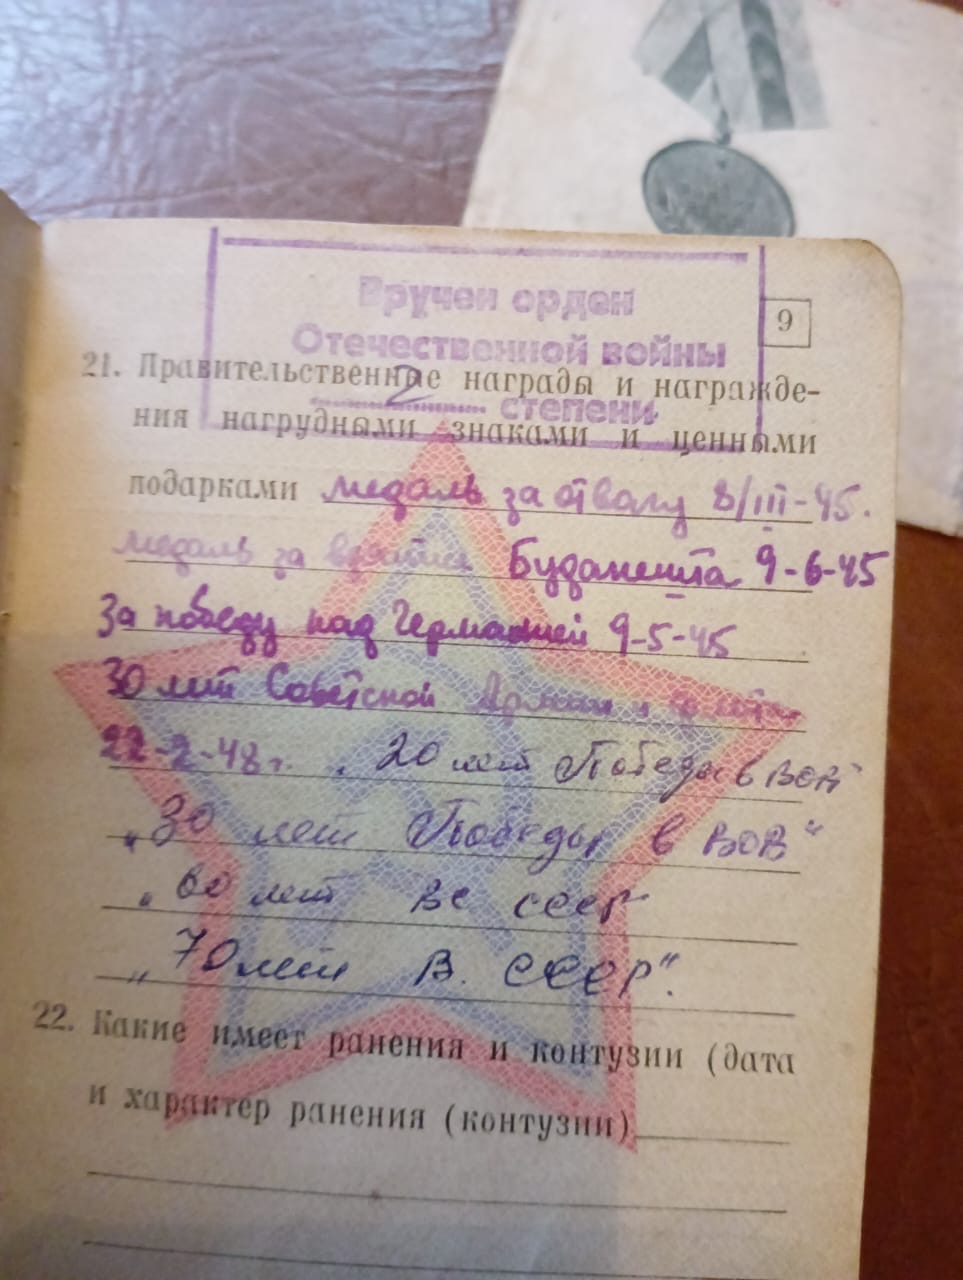 Вручен орден
Отечественной войны
2 степени
9
21. Правительственные награды и награжде-
ния нагрудными знаками и ценными
подарками медаль за отвагу 8/III-45.
медаль за взятие Будапешта 9-6-45
За победу над Германией 9-5-45
30 лет Советской Армии и Флота
22-2-48г. "20 лет Победы в ВОВ"
"30 лет Победы в ВОВ"
"60 лет ВС СССР
"70 лет В. СССР".
22. Какие имеет ранения и контузии (дата
и характер ранения (контузии)